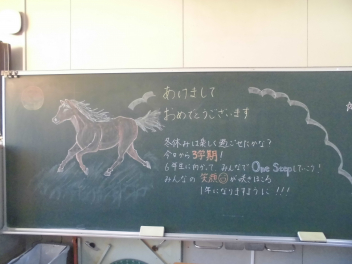 あけまして
おめでとうございます
冬休みは楽しく過ごせたかな?
今日から3学期!
6年生に向かって、みんなで One Stepしていこう!
みんなの 笑顔 が咲きほこる
1年になりますように!!!